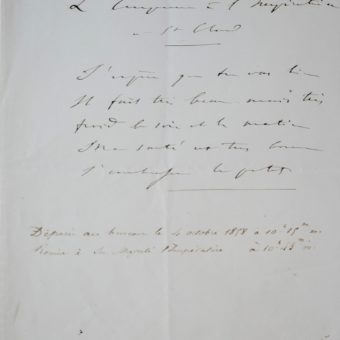 L'Empereur à l'Impératrice
à St Cloud
J'espère que tu vas bien
Il fait très beau mais très
froid le soir et le matin
Ma santé est très bonne
J'embrasse le petit
Déposée au bureau le 4 octobre 1858 à 10h 15m m.
Remise à Sa Majesté l'Impératrice à 10h 45m m.